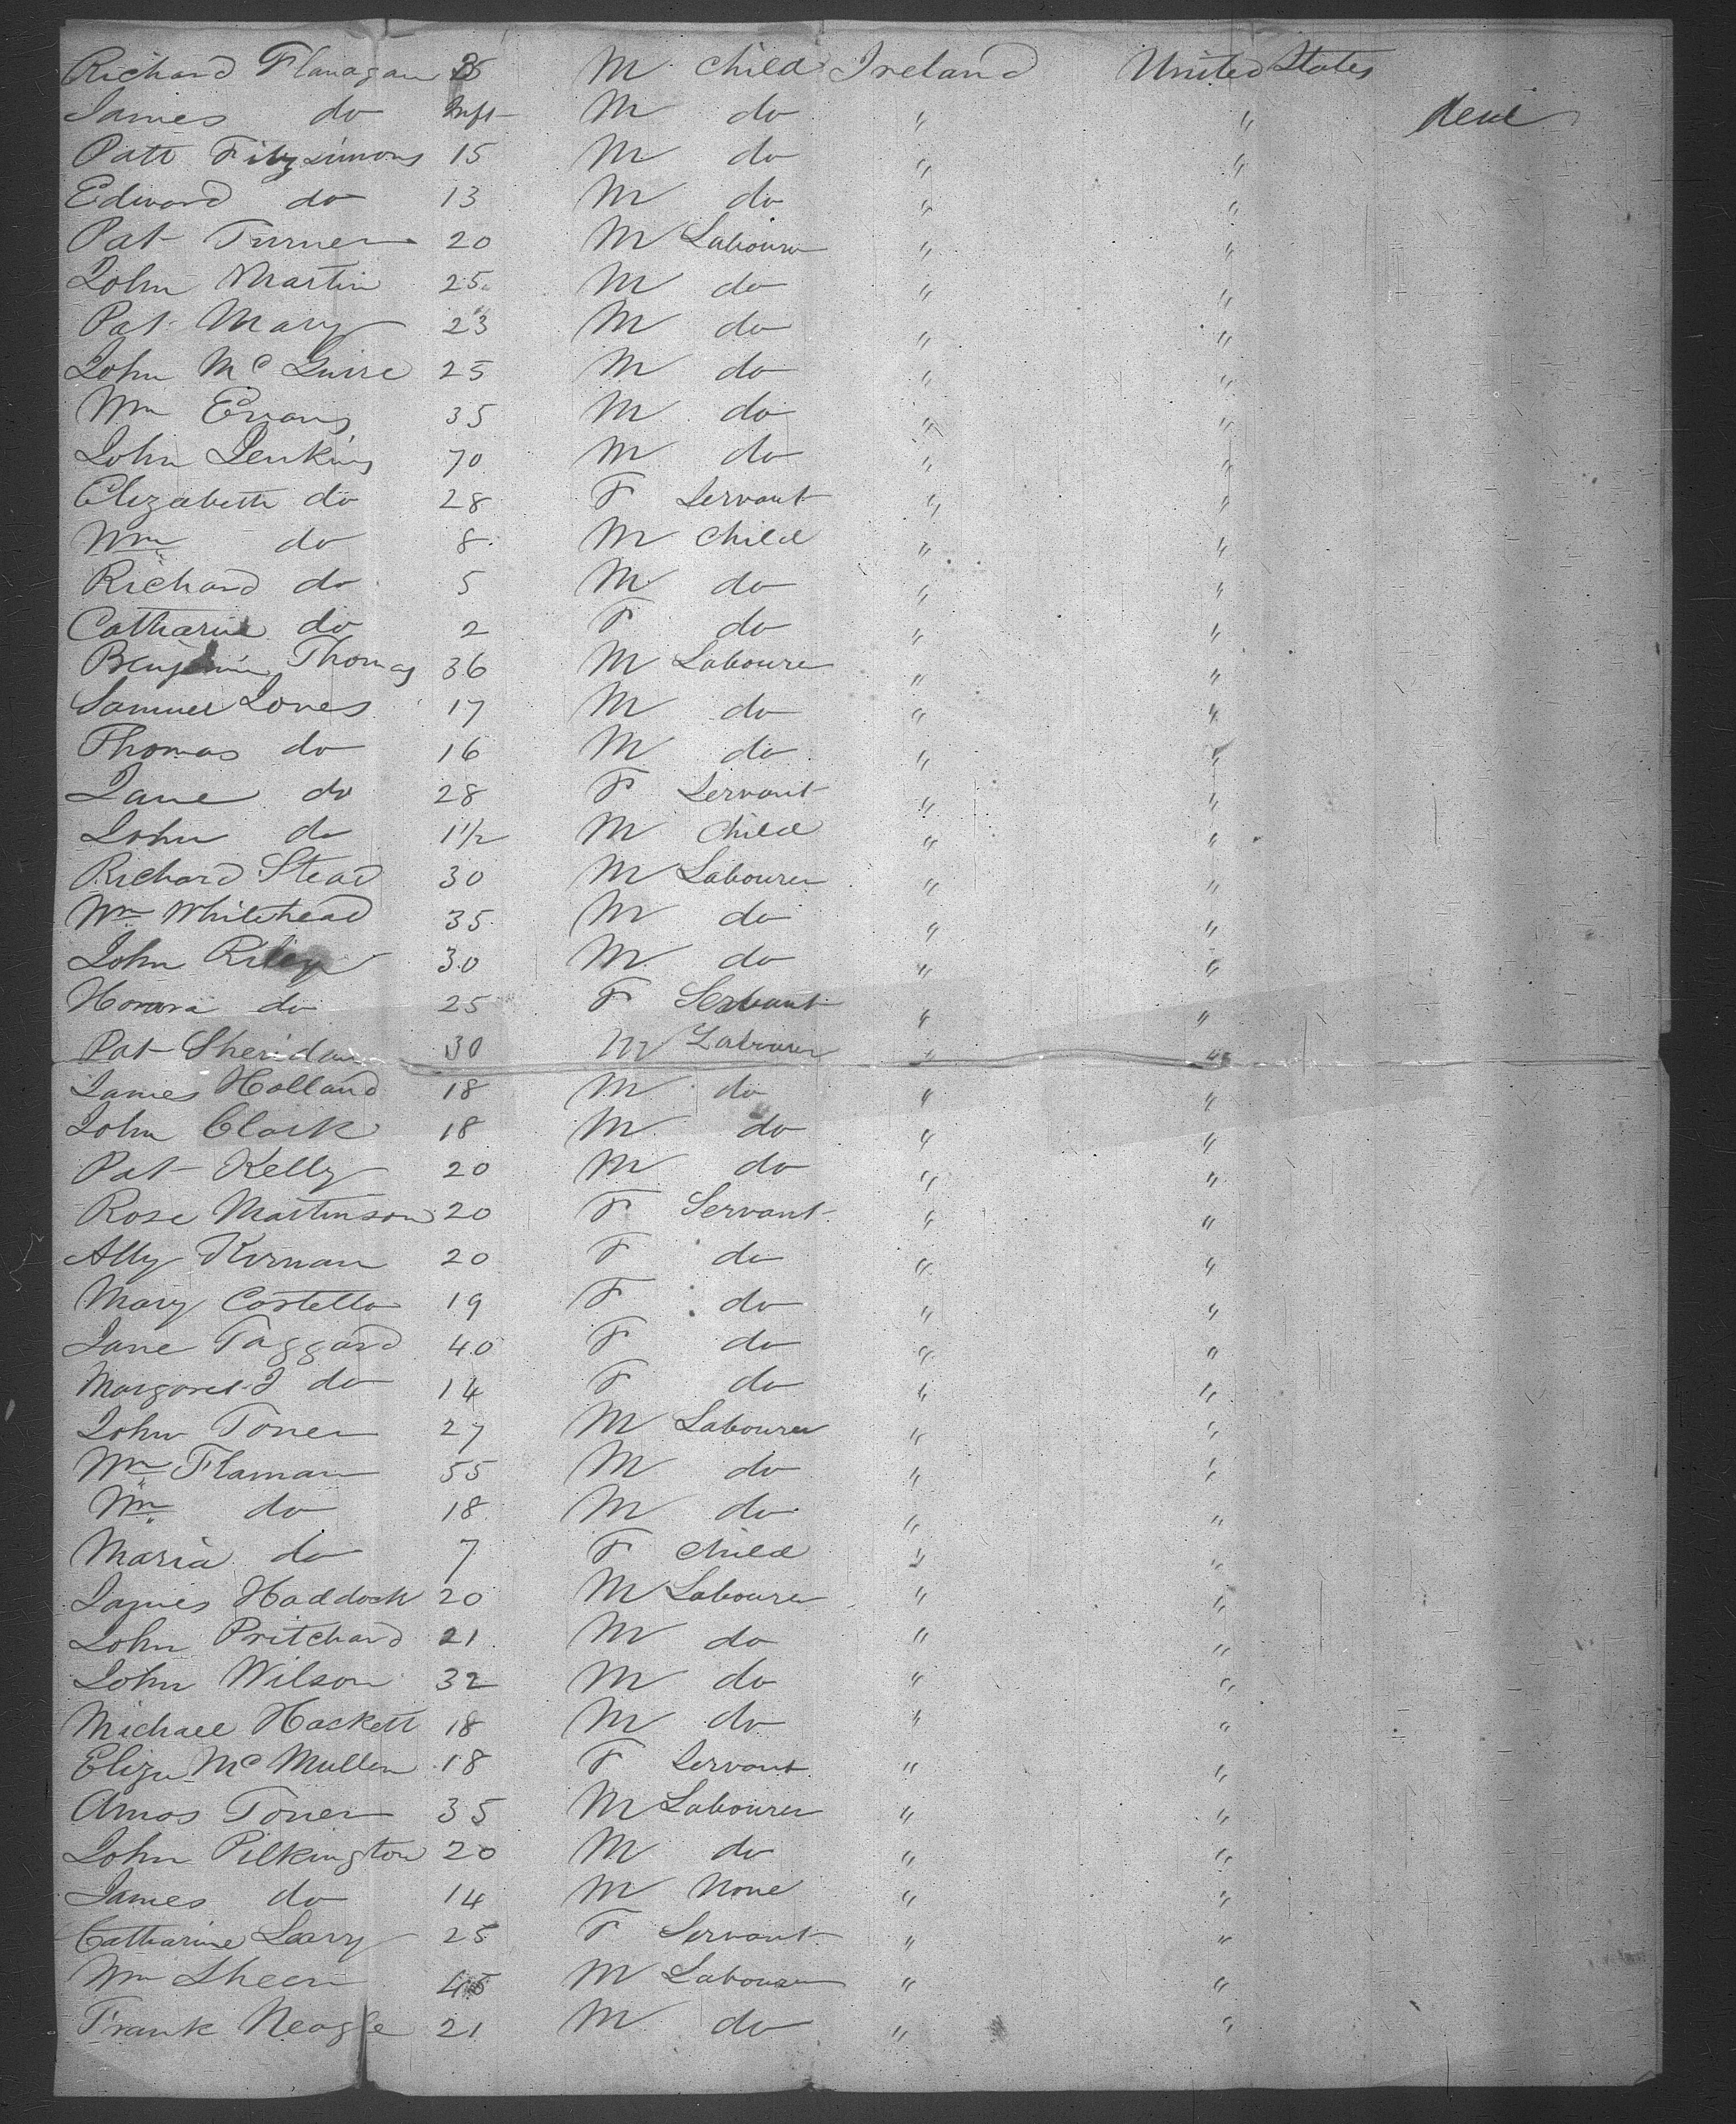 Richard Flanagan M Child Ireland United States
James do Inft M do " " dead
Patt Fitzsimons 15 M do " "
Edward do 13 M do " "
Pat Turner 20 M Labourer " "
John Martin 25 M do " "
Pat Mary 23 M do " "
John McGuire 25 M do " "
Wm Evans 35 M do " "
John Jenkins 70 M do " "
Elizabeth do 28 F Servant " "
Wm do 8 M Child " "
Richard do 5 M do " "
Catharine do 2 F do " "
Benjamin Thomas 36 M Labourer " "
Samuel Jones 17 M do " "
Thomas do 16 M do " "
Jane do 28 F Servant " "
John do 1 1/2 M Child " "
Richard Stead 30 M Labourer " "
Wm Whitehead 35 M do " "
John Riley 30 M do " "
Honora do 25 F Servant " "
Pat Sheridan 30 M Labourer " "
James Holland 18 M do " "
John Clark 18 M do " "
Pat Kelly 20 M do " "
Rose Martinson 20 F Servant " "
Ally Kirnan 20 F do " "
Mary Costello 19 F do " "
Jane Taggard 40 F do " "
Margaret J do 14 F do " "
John Toner 27 M Labourer " "
Wm Flaman 55 M do " "
Wm do 18 M do " "
Maria do 7 F Child " "
James Haddock 20 M Labourer " "
John Pritchard 21 M do " "
John Wilson 32 M do " "
Michael Hackett 18 M do " "
Eliza McMullen 18 F Servant " "
Amos Toner 35 M Labourer " "
John Pilkington 20 M do " "
James do 14 M None " "
Catharine Leary 25 F Servant " "
Wm Sheen 45 M Labourer " "
Frank Neagle 21 M do " "